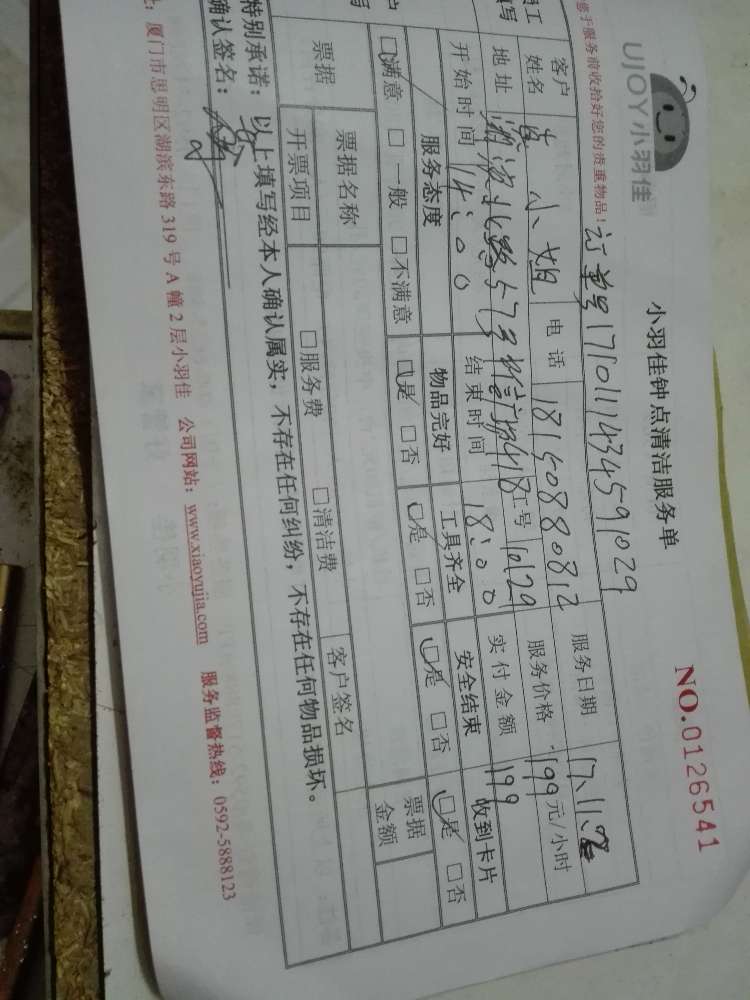 UJOY小羽佳
小羽佳钟点清洁服务单
NO.0126541
于服务前收拾好您的贵重物品！
订单号17101114345591029
客户姓名 小姐 电话 18150880812 服务日期 17.11.2
地址 湖滨北路57号 418 工号 10129 服务价格 199元/小时
开始时间 14:00 结束时间 18:00 实付金额 199
服务态度 物品完好 工具齐全 安全结束 收到卡片
☑满意 □一般 □不满意 ☑是 □否 ☑是 □否 ☑是 □否 ☑是 □否
票据 票据名称 客户签名 票据金额
开票项目 □服务费 □清洁费
特别承诺：以上填写经本人确认属实，不存在任何纠纷，不存在任何物品损坏。
确认签名：
厦门市思明区湖滨东路319号A幢2层小羽佳 公司网站：www.xiaoyujia.com 服务监督热线：0592-5888123